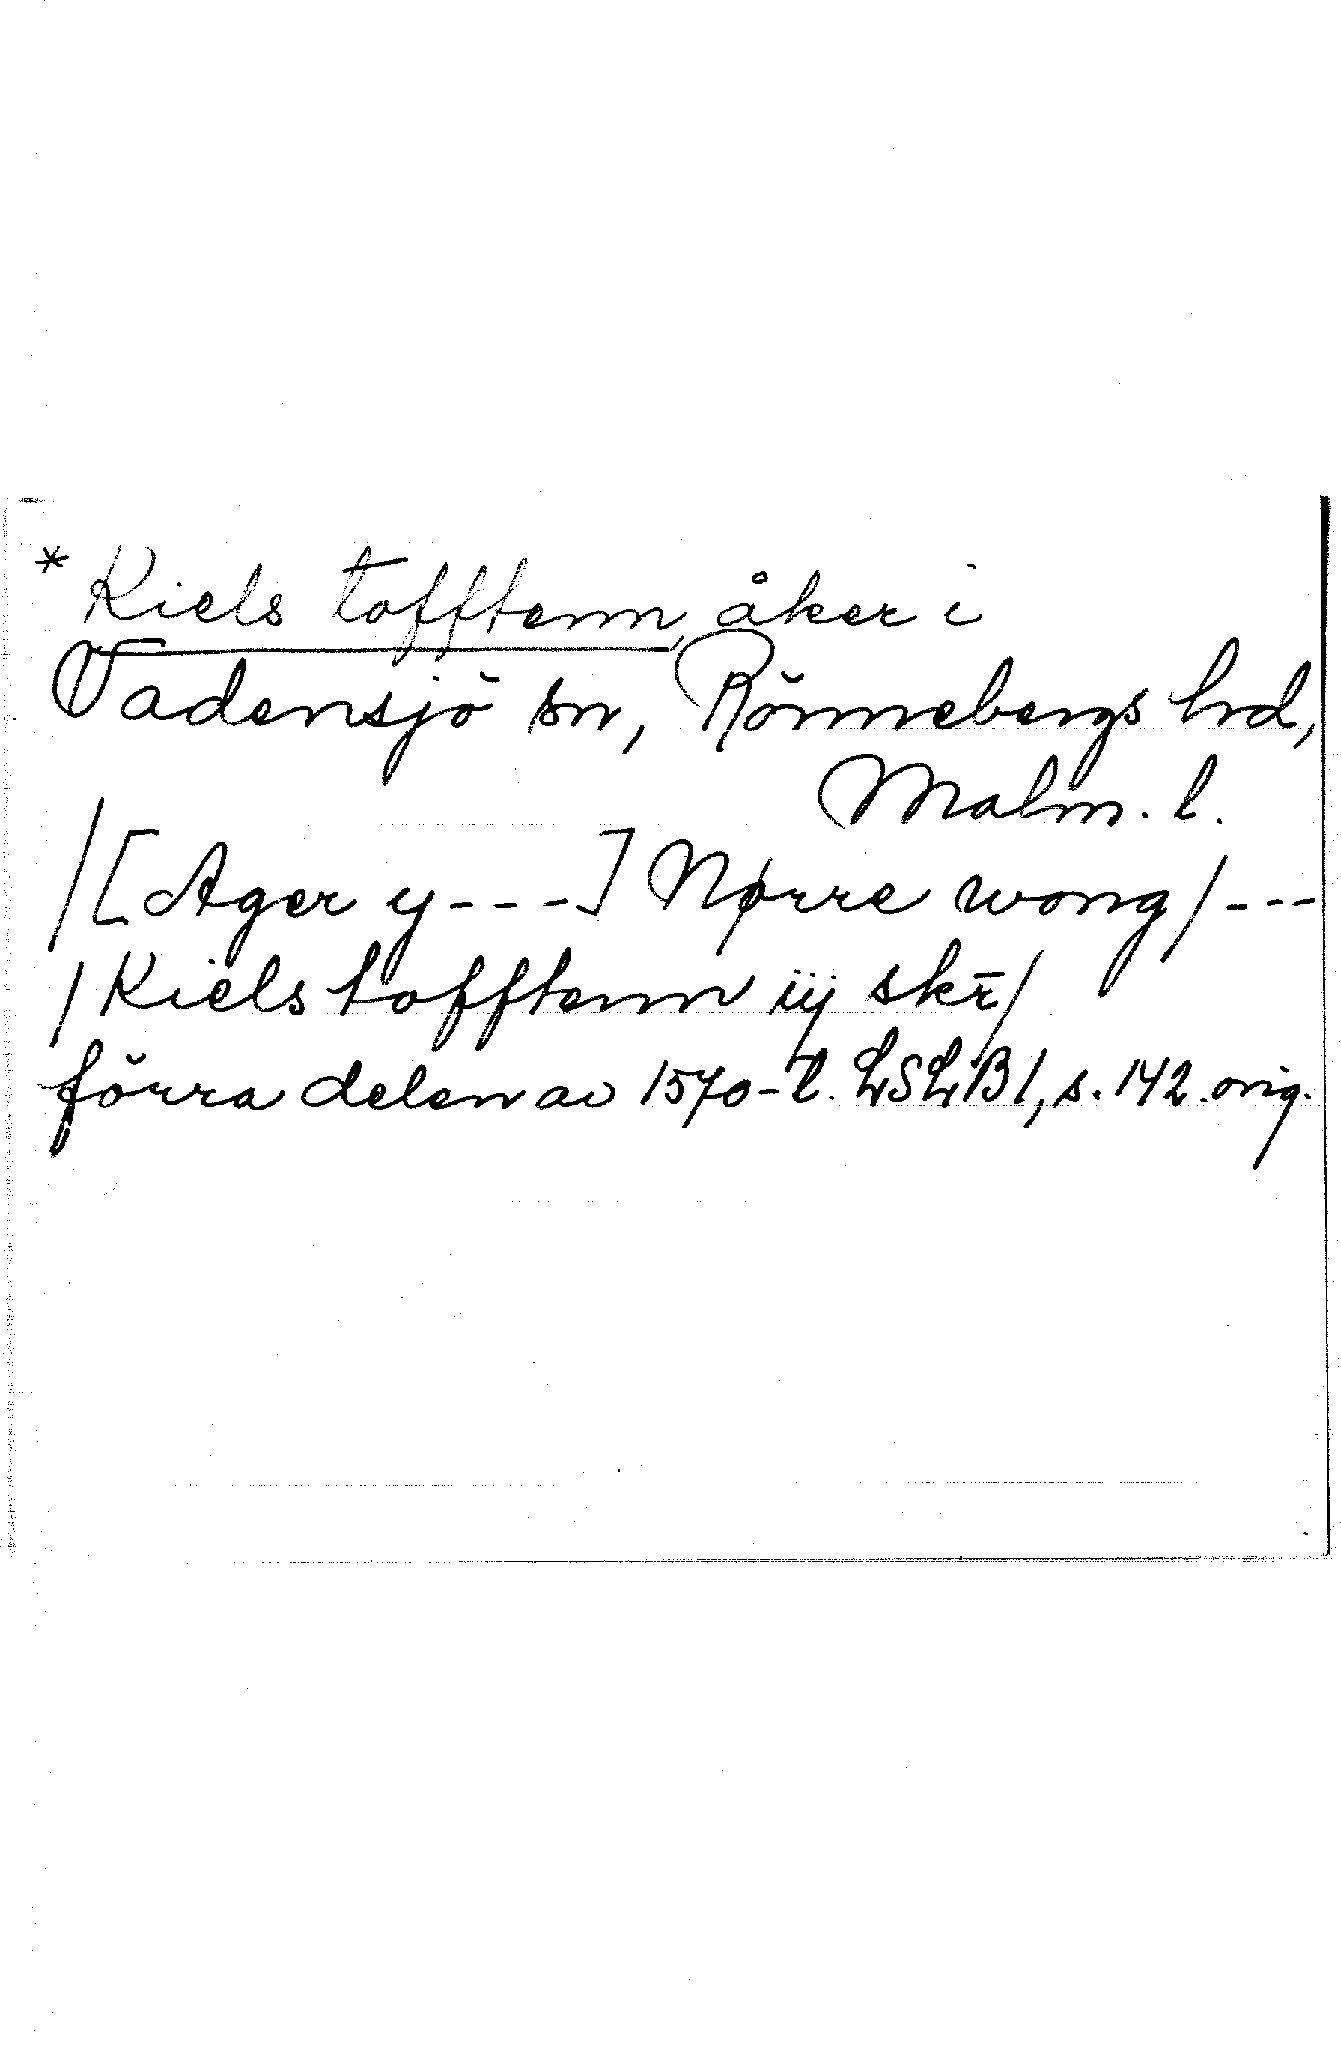 * Kiels tofftenn, åker i
Vadensjö sn, Rönnebergs hrd,
Malm. l.
/[Ager y---] Nørre wong/---
/Kiels tofftenn iij skr̄/
förra delen av 1570-t. LSLB1, s. 142. orig.